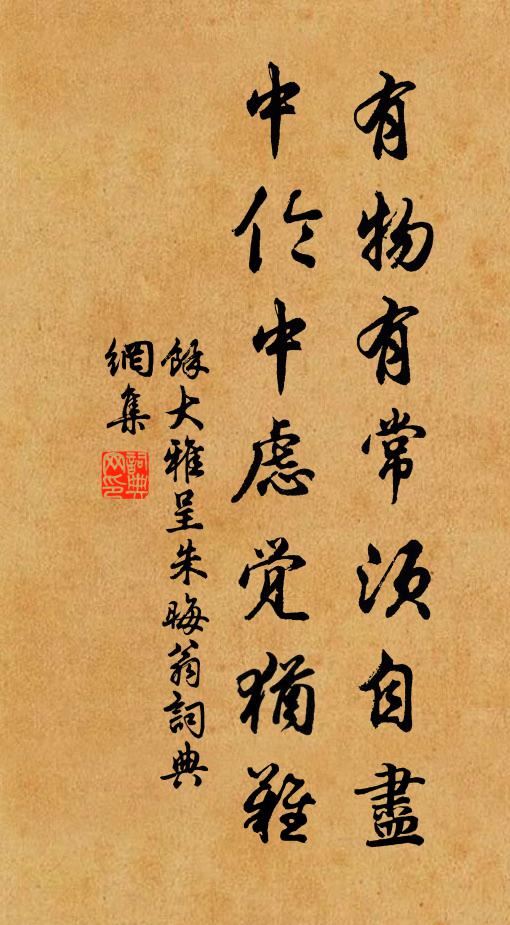 有物有常須自盡
中倫中慮覺猶難
餘大雅呈朱晦翁詞典
網集
詞典
网印